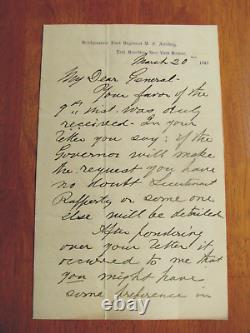 Headquarters First Regiment U. S. Artillery,
Fort Hamilton, New York Harbor,
March 20th 18
My Dear General-
Your favor of the
9th inst was duly
received- In your
letter you say: if the
Governor will make
the request you have
no doubt Lieutenant
Rafferty or some one
else will be detailed
After pondering
over your letter it
occurred to me that
you might have
some preference in